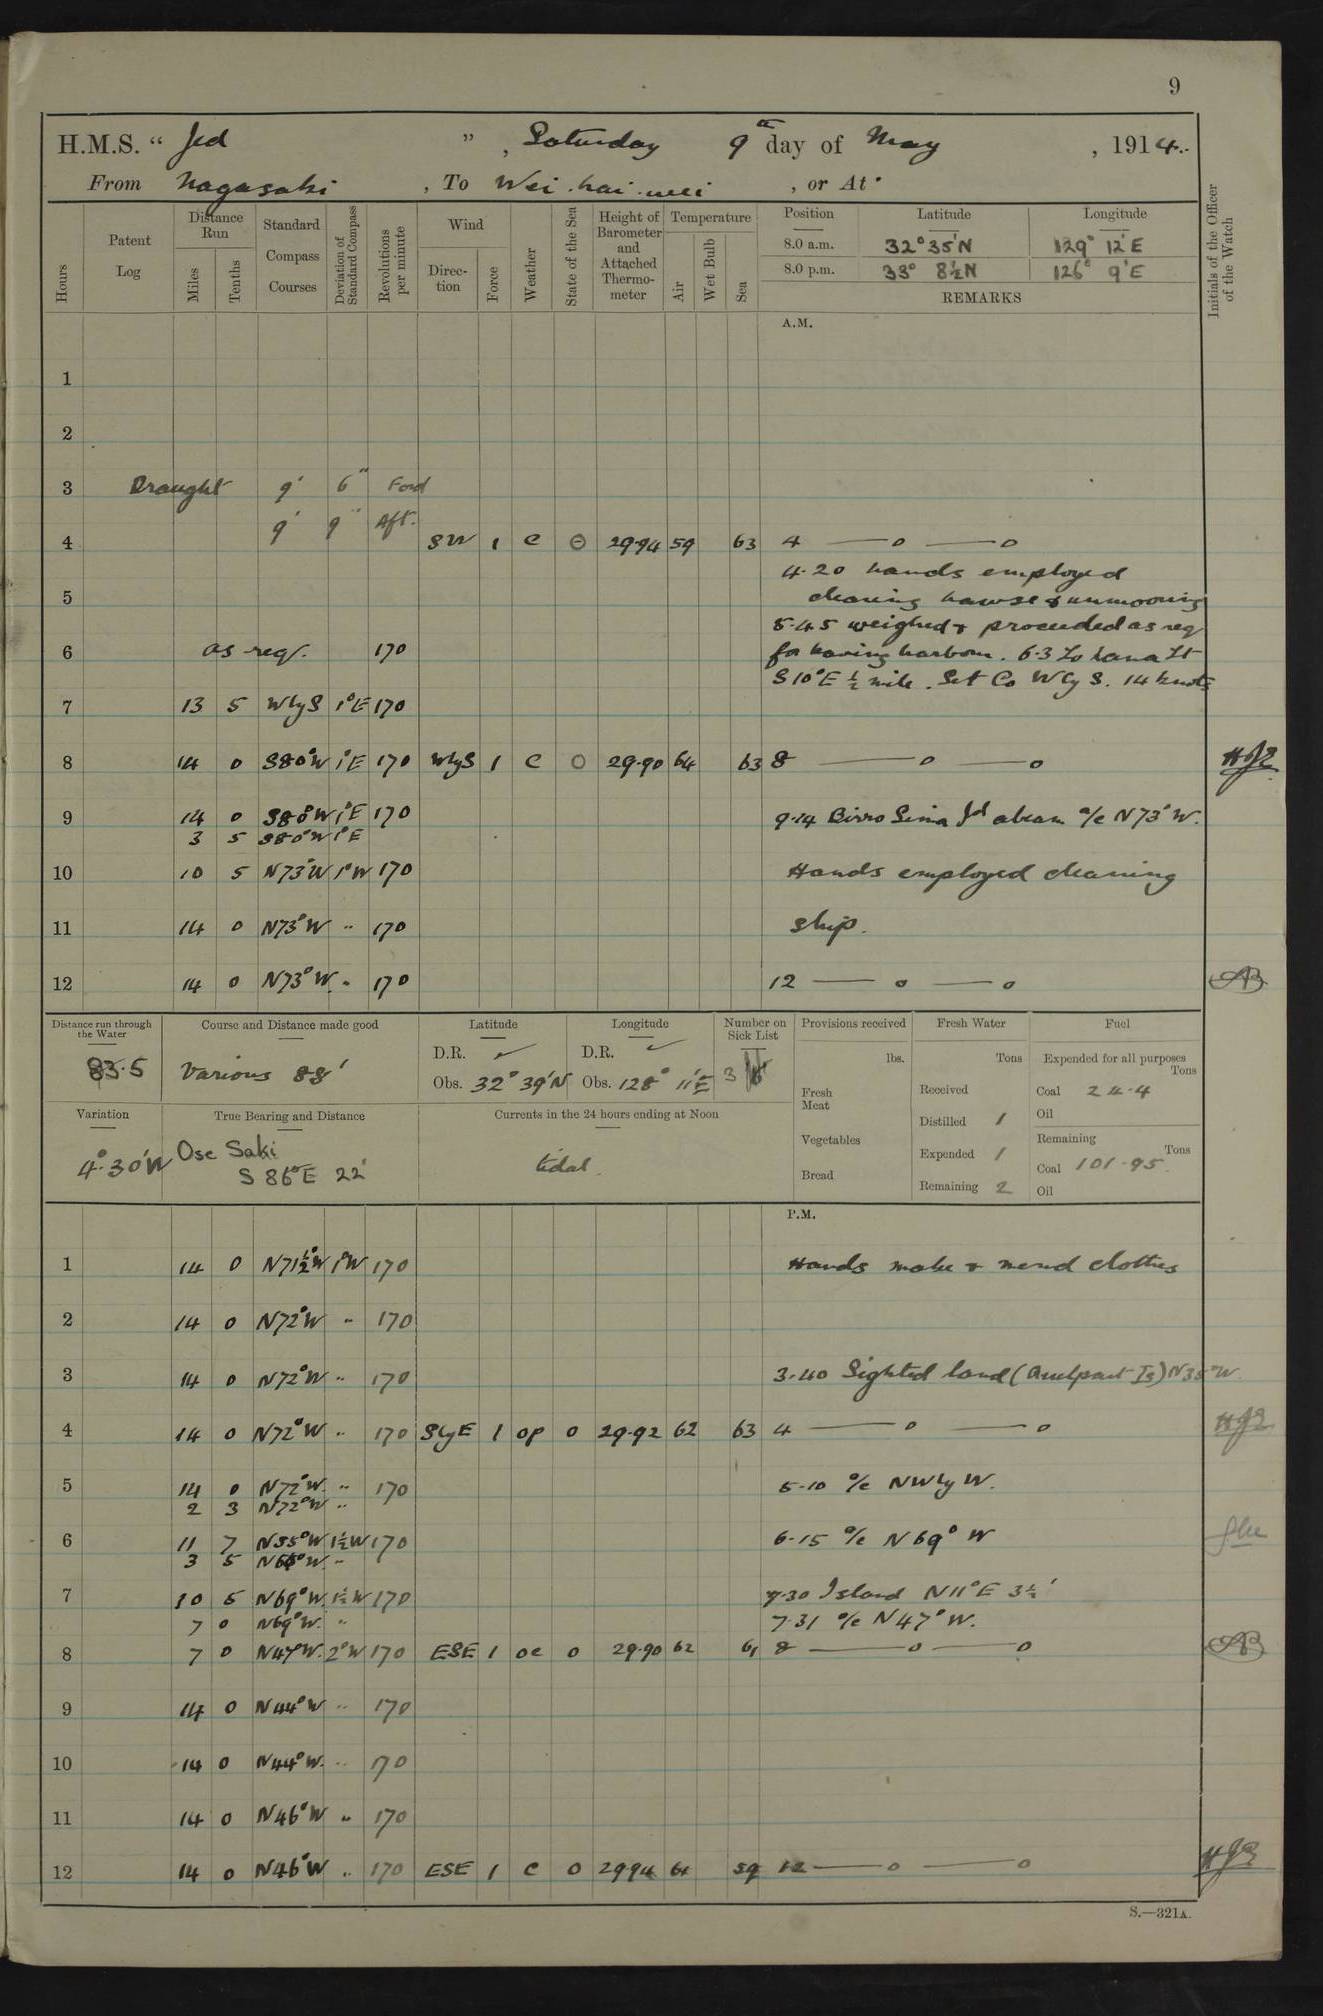 9
H.M.S. “ Jed ” , Saturday 9th day of May , 1914.
From Nagasaki , To Wei-hai-wei , or At
Hours
Patent Log
Distance Run
Miles
Tenths
Standard Compass Courses
Deviation of Standard Compass
Revolutions per minute
Wind
Direction
Force
Weather
State of the Sea
Height of Barometer and Attached Thermometer
Temperature
Air
Wet Bulb
Sea
Position Latitude Longitude
8.0 a.m. 32° 35' N 129° 12' E
8.0 p.m. 33° 8½ N 126° 9' E
REMARKS
Initials of the Officer of the Watch
A.M.
1
2
3 Draught 9' 6" Ford
9' 9" Aft.
4 SW 1 c 29.94 59 63 4 — o — o
4.20 hands employed
5 clearing hawse & unmooring
5.45 weighed & proceeded as req
6 as req. 170 for leaving harbour. 6.3 Lt
S10°E ½ mile. Set Co WbyS. 14 knots
7 13 5 WbyS 1°E 170
8 14 0 S80°W 1°E 170 WbyS 1 c 0 29.90 64 63 8 — o — o
9 14 0 S80°W 1°E 170 9.14 abeam a/c N73°W.
3 5 S80°W 1°E
10 10 5 N73°W 1°W 170 Hands employed cleaning
11 14 0 N73°W " 170 ship.
12 14 0 N73°W. " 170 12 — o — o
Distance run through the Water 83.5
Course and Distance made good Various 88'
Latitude D.R. ✓ Obs. 32° 39' N
Longitude D.R. ✓ Obs. 128° 11' E
Number on Sick List 3
Provisions received lbs.
Fresh Meat
Vegetables
Bread
Fresh Water Tons
Received
Distilled 1
Expended 1
Remaining 2
Fuel
Expended for all purposes Tons
Coal 24.4
Oil
Remaining Tons
Coal 101.95
Oil
Variation 4°.30'W
True Bearing and Distance Ose Saki
S 86°E 22'
Currents in the 24 hours ending at Noon tidal.
P.M.
1 14 0 N71½°W 1°W 170 Hands make & mend clothes
2 14 0 N72°W " 170
3 14 0 N72°W " 170 3.40 Sighted land (Quelpart Is) N35°W
4 14 0 N72°W " 170 SbyE 1 op 0 29.92 62 63 4 — o — o
5 14 0 N72°W. " 170 5.10 a/c NWbyW.
2 3 N72°W "
6 11 7 N55°W 1½W 170 6.15 a/c N69°W
3 5 "
7 10 5 N69°W. 1½W 170 7.30 Island N11°E 3½'
7 0 N69°W. " 7.31 a/c N47°W.
8 7 0 N47°W. 2°W 170 ESE 1 oc 0 29.90 62 61 8 — o — o
9 14 0 N44°W " 170
10 14 0 N44°W. " 170
11 14 0 N46°W " 170
12 14 0 N46°W " 170 ESE 1 c 0 29.94 61 59 12 — o — o
S.—321A.